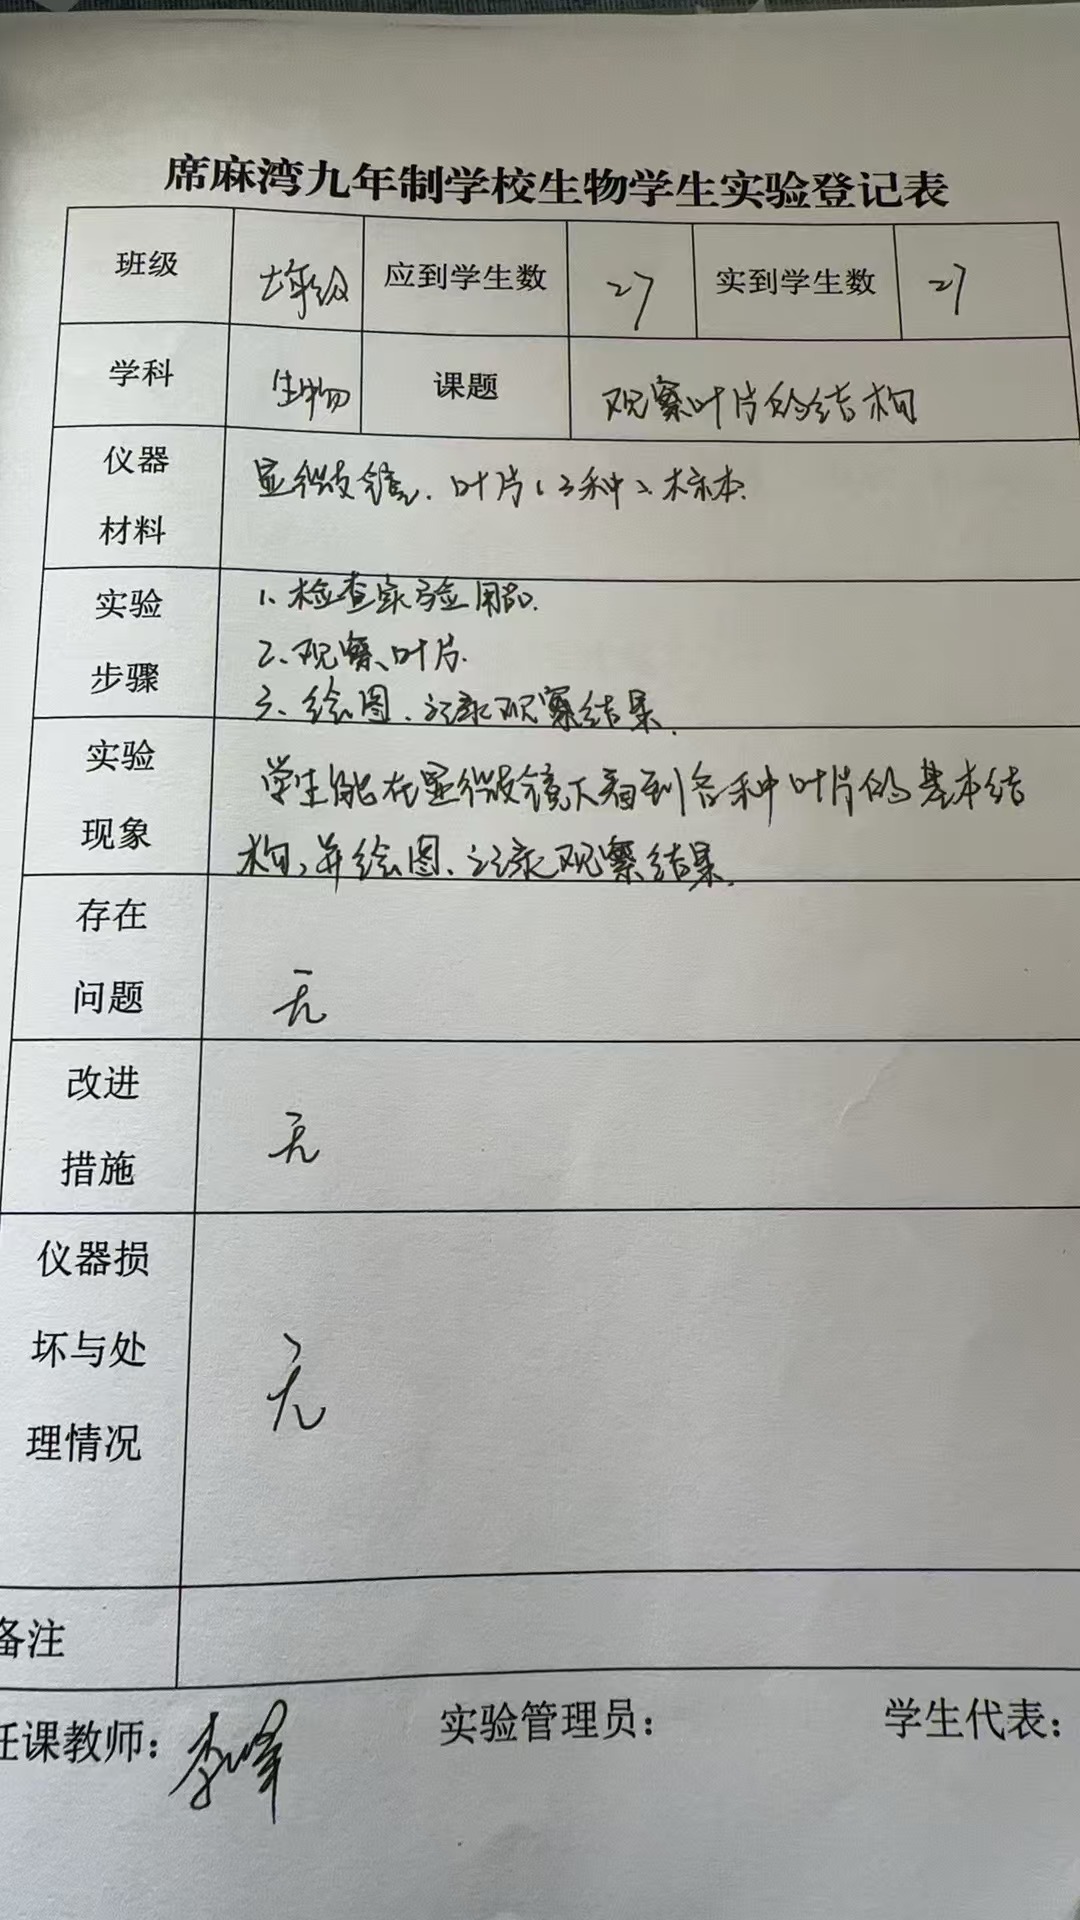 席麻湾九年制学校生物学生实验登记表
班级 七年级 应到学生数 27 实到学生数 27
学科 生物 课题 观察叶片的结构
仪器 显微镜、叶片(3种)、标本.
材料
实验 1、检查实验用品.
2、观察叶片.
步骤
3、绘图、记录观察结果.
实验 学生能在显微镜下看到各种叶片的基本结
现象 构,并绘图、记录观察结果.
存在
问题 无
改进
措施 无
仪器损
坏与处 无
理情况
备注
任课教师:李峰 实验管理员: 学生代表: